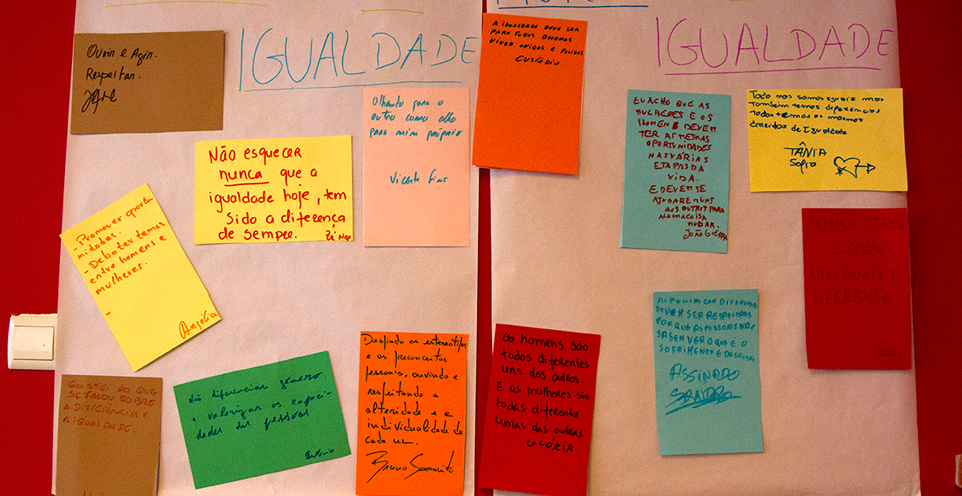 IGUALDADE
IGUALDADE
Ouvir e Agir.
Respeitar.
Não esquecer
nunca que a
igualdade hoje, tem
sido a diferença
de sempre.
Olhando para o
outro como olho
para mim próprio
- Promover oportu
nidades.
- Debater temas
entre homens e
mulheres.
Angélica
GOSTEI DO QUE
SE FALOU SOBRE
A DIFICIÊNCIA E
A IGUALDADE.
Não diferenciar género
e valorizar as capaci-
dades das pessoas
Desafiando os estereótipos
e os preconceitos
pessoais, ouvindo e
respeitando a
alteridade e a
individualidade de
cada um.
Bruno
A IGUALDADE DEVE SER
PARA TODOS DEVEMOS
VIVER UNIDOS E FELIZES
CUSTÓDIO
EU ACHO QUE AS
MULHERES E OS
HOMENS DEVEM
TER AS MESMAS
OPORTUNIDADES
NAS VÁRIAS
ETAPAS DA
VIDA.
E DEVEM SE
AJUDAREM UNS
AOS OUTROS PARA
ALGUMA COISA
MUDAR.
JOÃO
Todo nos somos iguais mas
também temos diferenças
todos temos os mesmos
direitos de Igualdade
TÂNIA
Sofia
SOMOS TODOS
IGUAIS
NINGUÉM É
DIFERENTE
OS homens são
todos diferentes
uns dos outros.
E as mulheres são
todas diferente
umas das outras
GLÓRIA
DEVEM SER RESPEITADAS
PORQUE AS PESSOAS NÃO
SABEM VER O QUE É O
SOFRIMENTO
ASSINADO
SANDRO